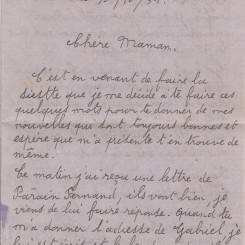 Chère Maman.
C'est en venant de faire la
siestte que je me decide à te faire ces
quelques mots pour te donner de mes
nouvelles que sont toujours bonnes et
espère que m'a présente t'en trouve de
même.
Ce matin j'ai reçu une lettre de
Parain Fernand, ils vont bien, je
viens de lui faire réponse. Quand tu
m'a donner l'adresse de Gabriel je
lui